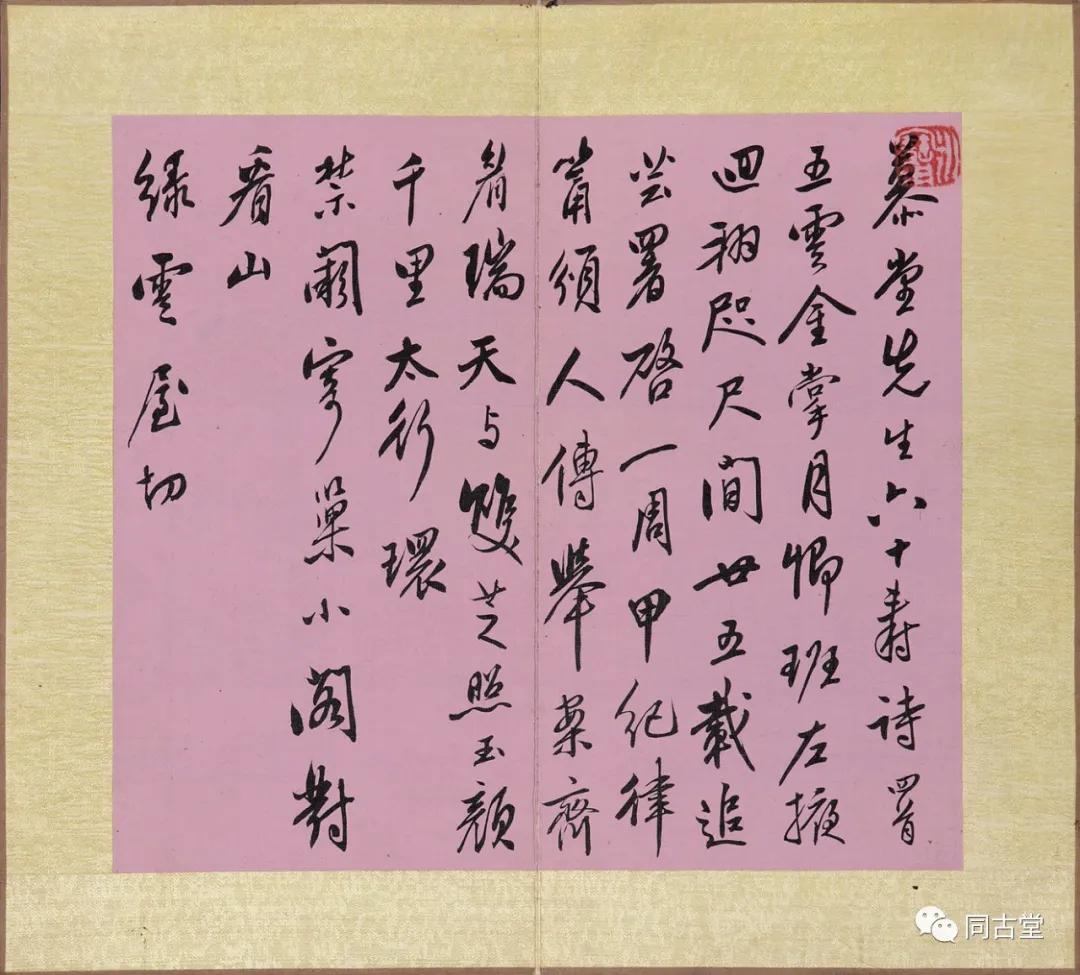 慕堂先生六十壽詩四首
五雲金掌月卿班左掖
迴翔咫尺間廿五載追
芸署啓一周甲紀律
筩頒人傳舉案齊
眉瑞天与雙芝照玉顏
千里太行環
禁闕寄巢小閣對
看山
綠雲屋切
同古堂